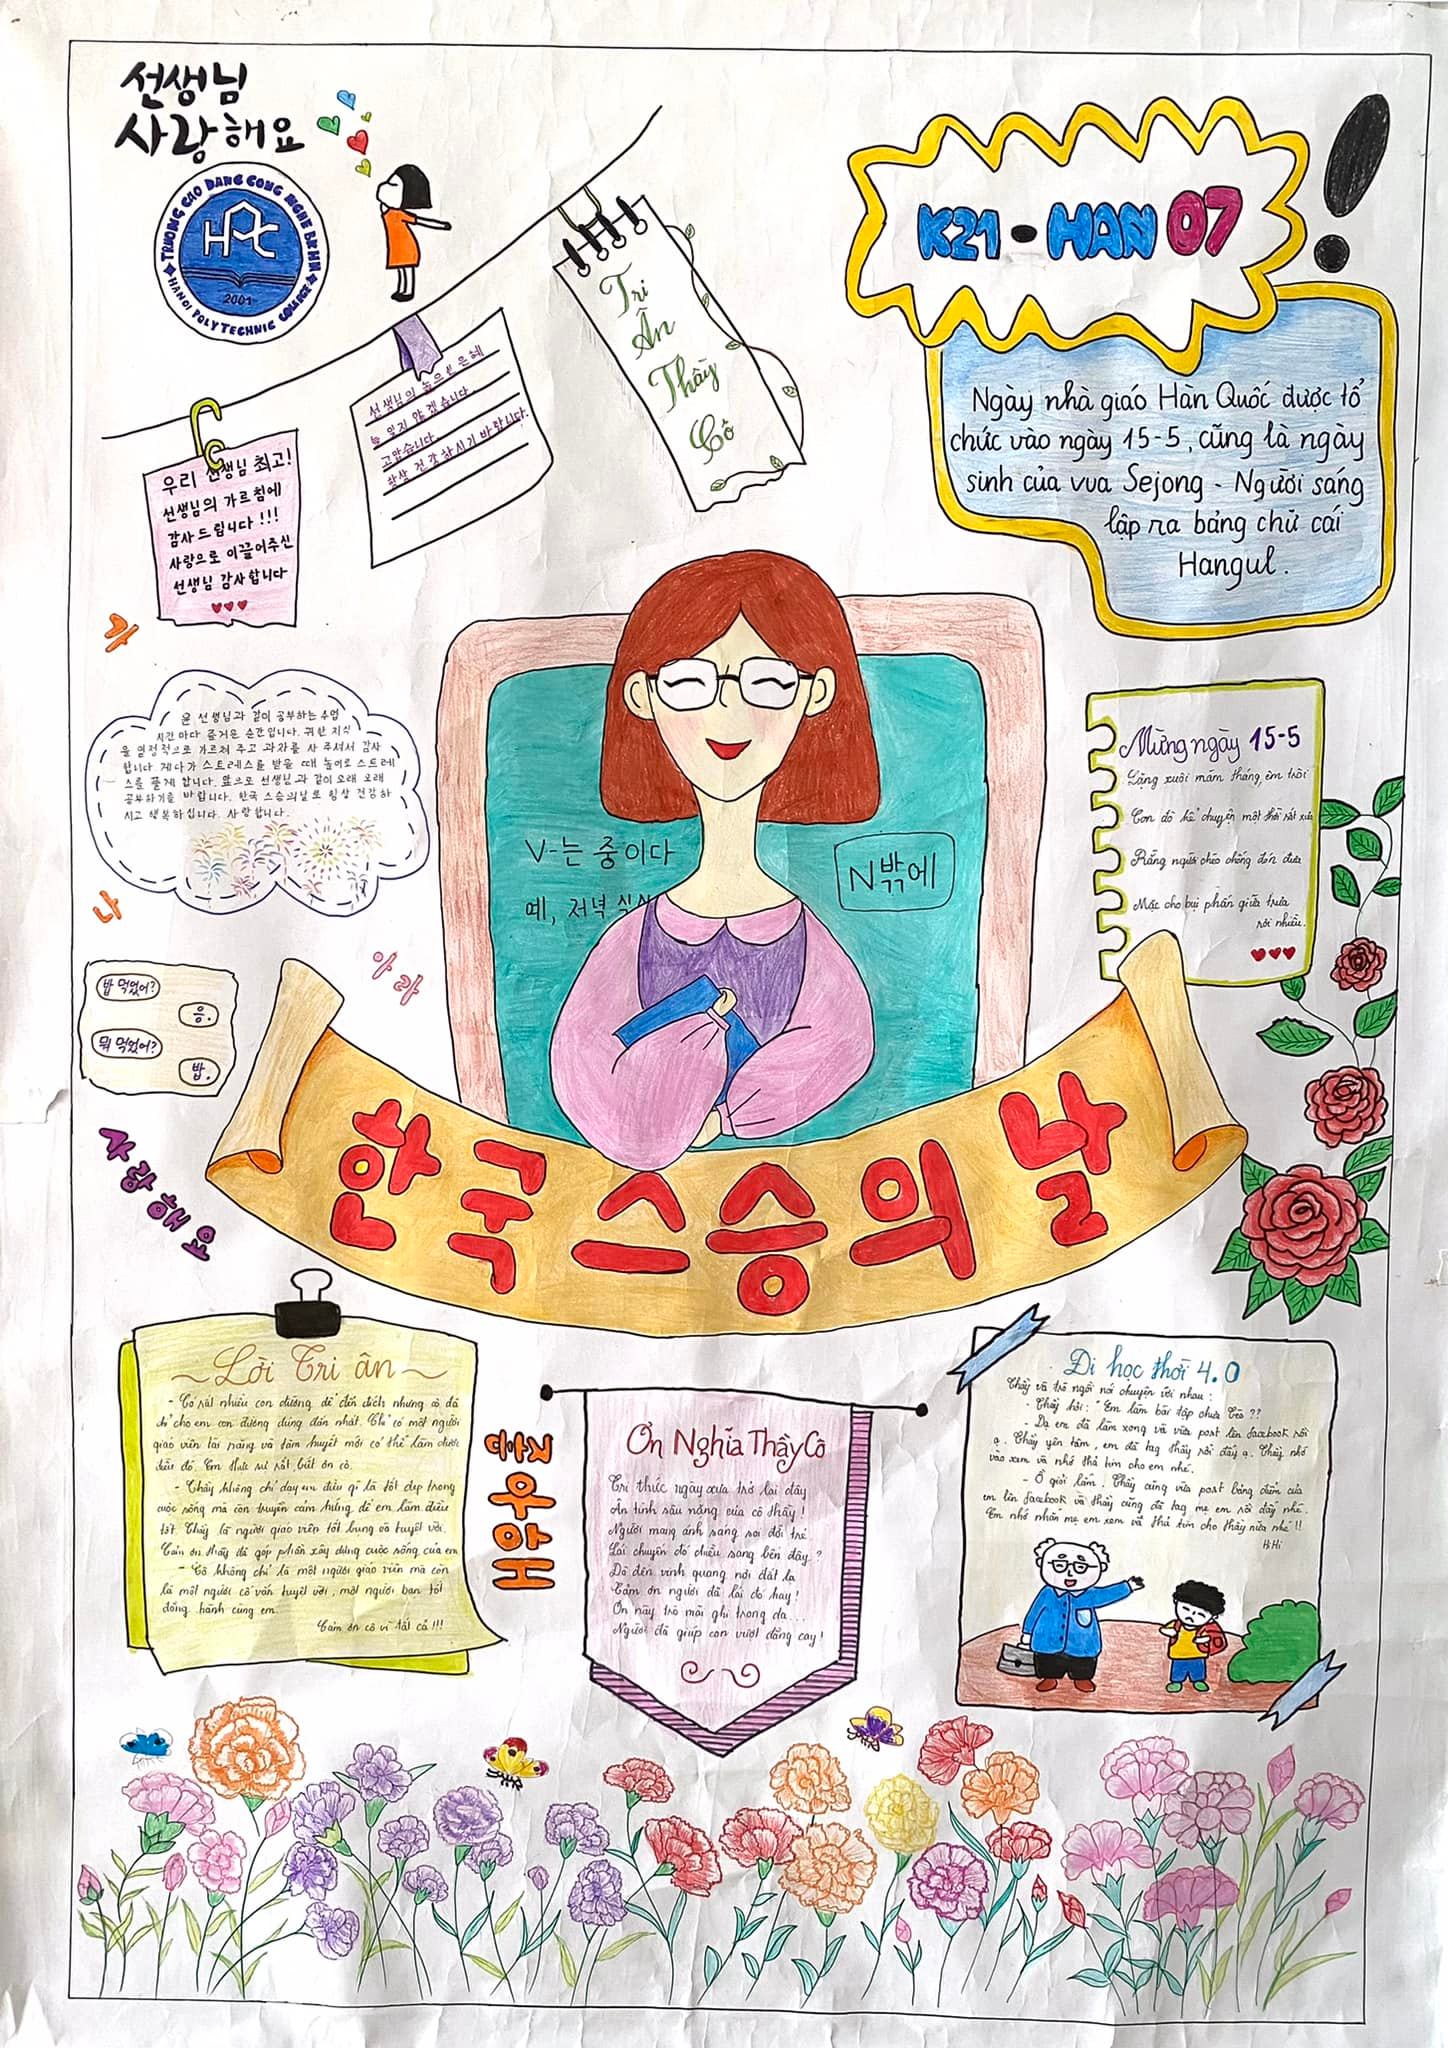 선생님
사랑해요
TRƯỜNG CAO ĐẲNG CÔNG NGHỆ BKHN
HPC
2001
HANOI POLYTECHNIC COLLEGE
Tri
Ân
Thầy
Cô
K21 - HAN 07 !
Ngày nhà giáo Hàn Quốc được tổ
chức vào ngày 15-5, cũng là ngày
sinh của vua Sejong - Người sáng
lập ra bảng chữ cái
Hangul.
선생님의 높으신 은혜
늘 잊지 않겠습니다.
고맙습니다.
항상 건강하시기 바랍니다.
우리 선생님 최고!
선생님의 가르침에
감사드립니다!!!
사랑으로 이끌어주신
선생님 감사합니다
가
윤 선생님과 같이 공부하는 수업
시간마다 즐거운 순간입니다. 귀한 지식
을 열정적으로 가르쳐 주고 과자를 사 주셔서 감사
합니다 게다가 스트레스를 받을 때 놀이로 스트레
스를 풀게 합니다. 앞으로 선생님과 같이 오래 오래
공부하기를 바랍니다. 한국 스승의날로 항상 건강하
시고 행복하십니다. 사랑합니다.
나
아라
V-는 중이다
예, 저녁
N밖에
Mừng ngày 15-5
Lặng xuôi năm tháng êm trôi
Con đò kể chuyện một thời rất xưa
Rằng người chèo chống đón đưa
Mặc cho bụi phấn giữa trưa
rơi nhiều.
밥 먹었어?
응.
뭐 먹었어?
밥.
사랑해요
한국 스승의 날
Lời Tri ân
- Có rất nhiều con đường để đến đích nhưng cô đã
chỉ cho em con đường đúng đắn nhất. Chỉ có một người
giáo viên tài năng và tâm huyết mới có thể làm được
điều đó. Em thực sự rất biết ơn cô.
- Thầy không chỉ dạy em điều gì là tốt đẹp trong
cuộc sống mà còn truyền cảm hứng để em làm điều
tốt. Thầy là người giáo viên tốt bụng và tuyệt vời.
Cảm ơn thầy đã góp phần xây dựng cuộc sống của em
- Cô không chỉ là một người giáo viên mà còn
là một người cố vấn tuyệt vời, một người bạn tốt
đồng hành cùng em.
Cảm ơn cô vì tất cả!!!
좋우아해
Ơn Nghĩa Thầy Cô
Tri thức ngày xưa trở lại đây
Ân tình sâu nặng của cô thầy!
Người mang ánh sáng soi đời trẻ
Lái chuyến đò chiều sang bến đây?
Đò đến vinh quang nơi đất lạ
Cảm ơn người đã lái đò hay!
Ơn này trò mãi ghi trong dạ...
Người đã giúp con vượt đắng cay!
Đi học thời 4.0
Thầy và trò ngồi nói chuyện với nhau:
- Thầy hỏi: "Em làm bài tập chưa Tèo??
- Dạ em đã làm xong và vừa post lên facebook rồi
ạ. Thầy yên tâm, em đã tag thầy rồi đấy ạ. Thầy nhớ
vào xem và nhớ thả tim cho em nhé.
- Ồ giỏi lắm. Thầy cũng vừa post bảng điểm của
em lên facebook và thầy cũng đã tag mẹ em rồi đấy nhé.
Em nhớ nhắn mẹ em xem và thả tim cho thầy nữa nhé!!
HiHi